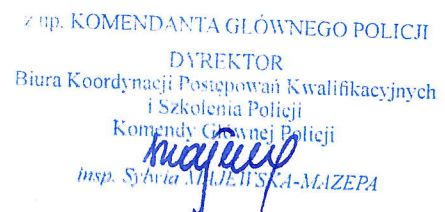 z up. KOMENDANTA GŁÓWNEGO POLICJI
DYREKTOR
Biura Koordynacji Postępowań Kwalifikacyjnych
i Szkolenia Policji
Komendy Głównej Policji
insp. Sylwia MAJEWSKA-MAZEPA